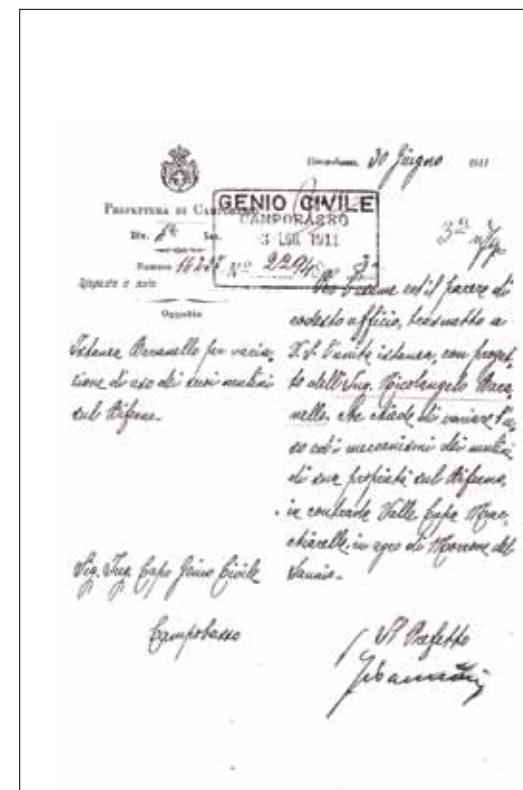 Campobasso, 30 Giugno 1911
PREFETTURA DI CAMPOBASSO
Div. 4ª Sez.
Numero 14227
Risposta a nota
Oggetto
GENIO CIVILE
CAMPOBASSO
3 LUG. 1911
Nº 2294
Istanza Baranello per varia-
zione di uso dei suoi mulini
sul Biferno.
Sig. Ing. Capo Genio Civile
Campobasso
Per l'esame ed il parere di
codesto ufficio, trasmetto a
V. S. l'unita istanza, con proget-
to dell'Ing. Nicolangelo Bara-
nello, che chiede di variare l'u-
so ed i meccanismi dei mulini
di sua proprietà sul Biferno,
in contrada Valle Cupa Mac-
chiarelle, in agro di Morrone del
Sannio.
Il Prefetto